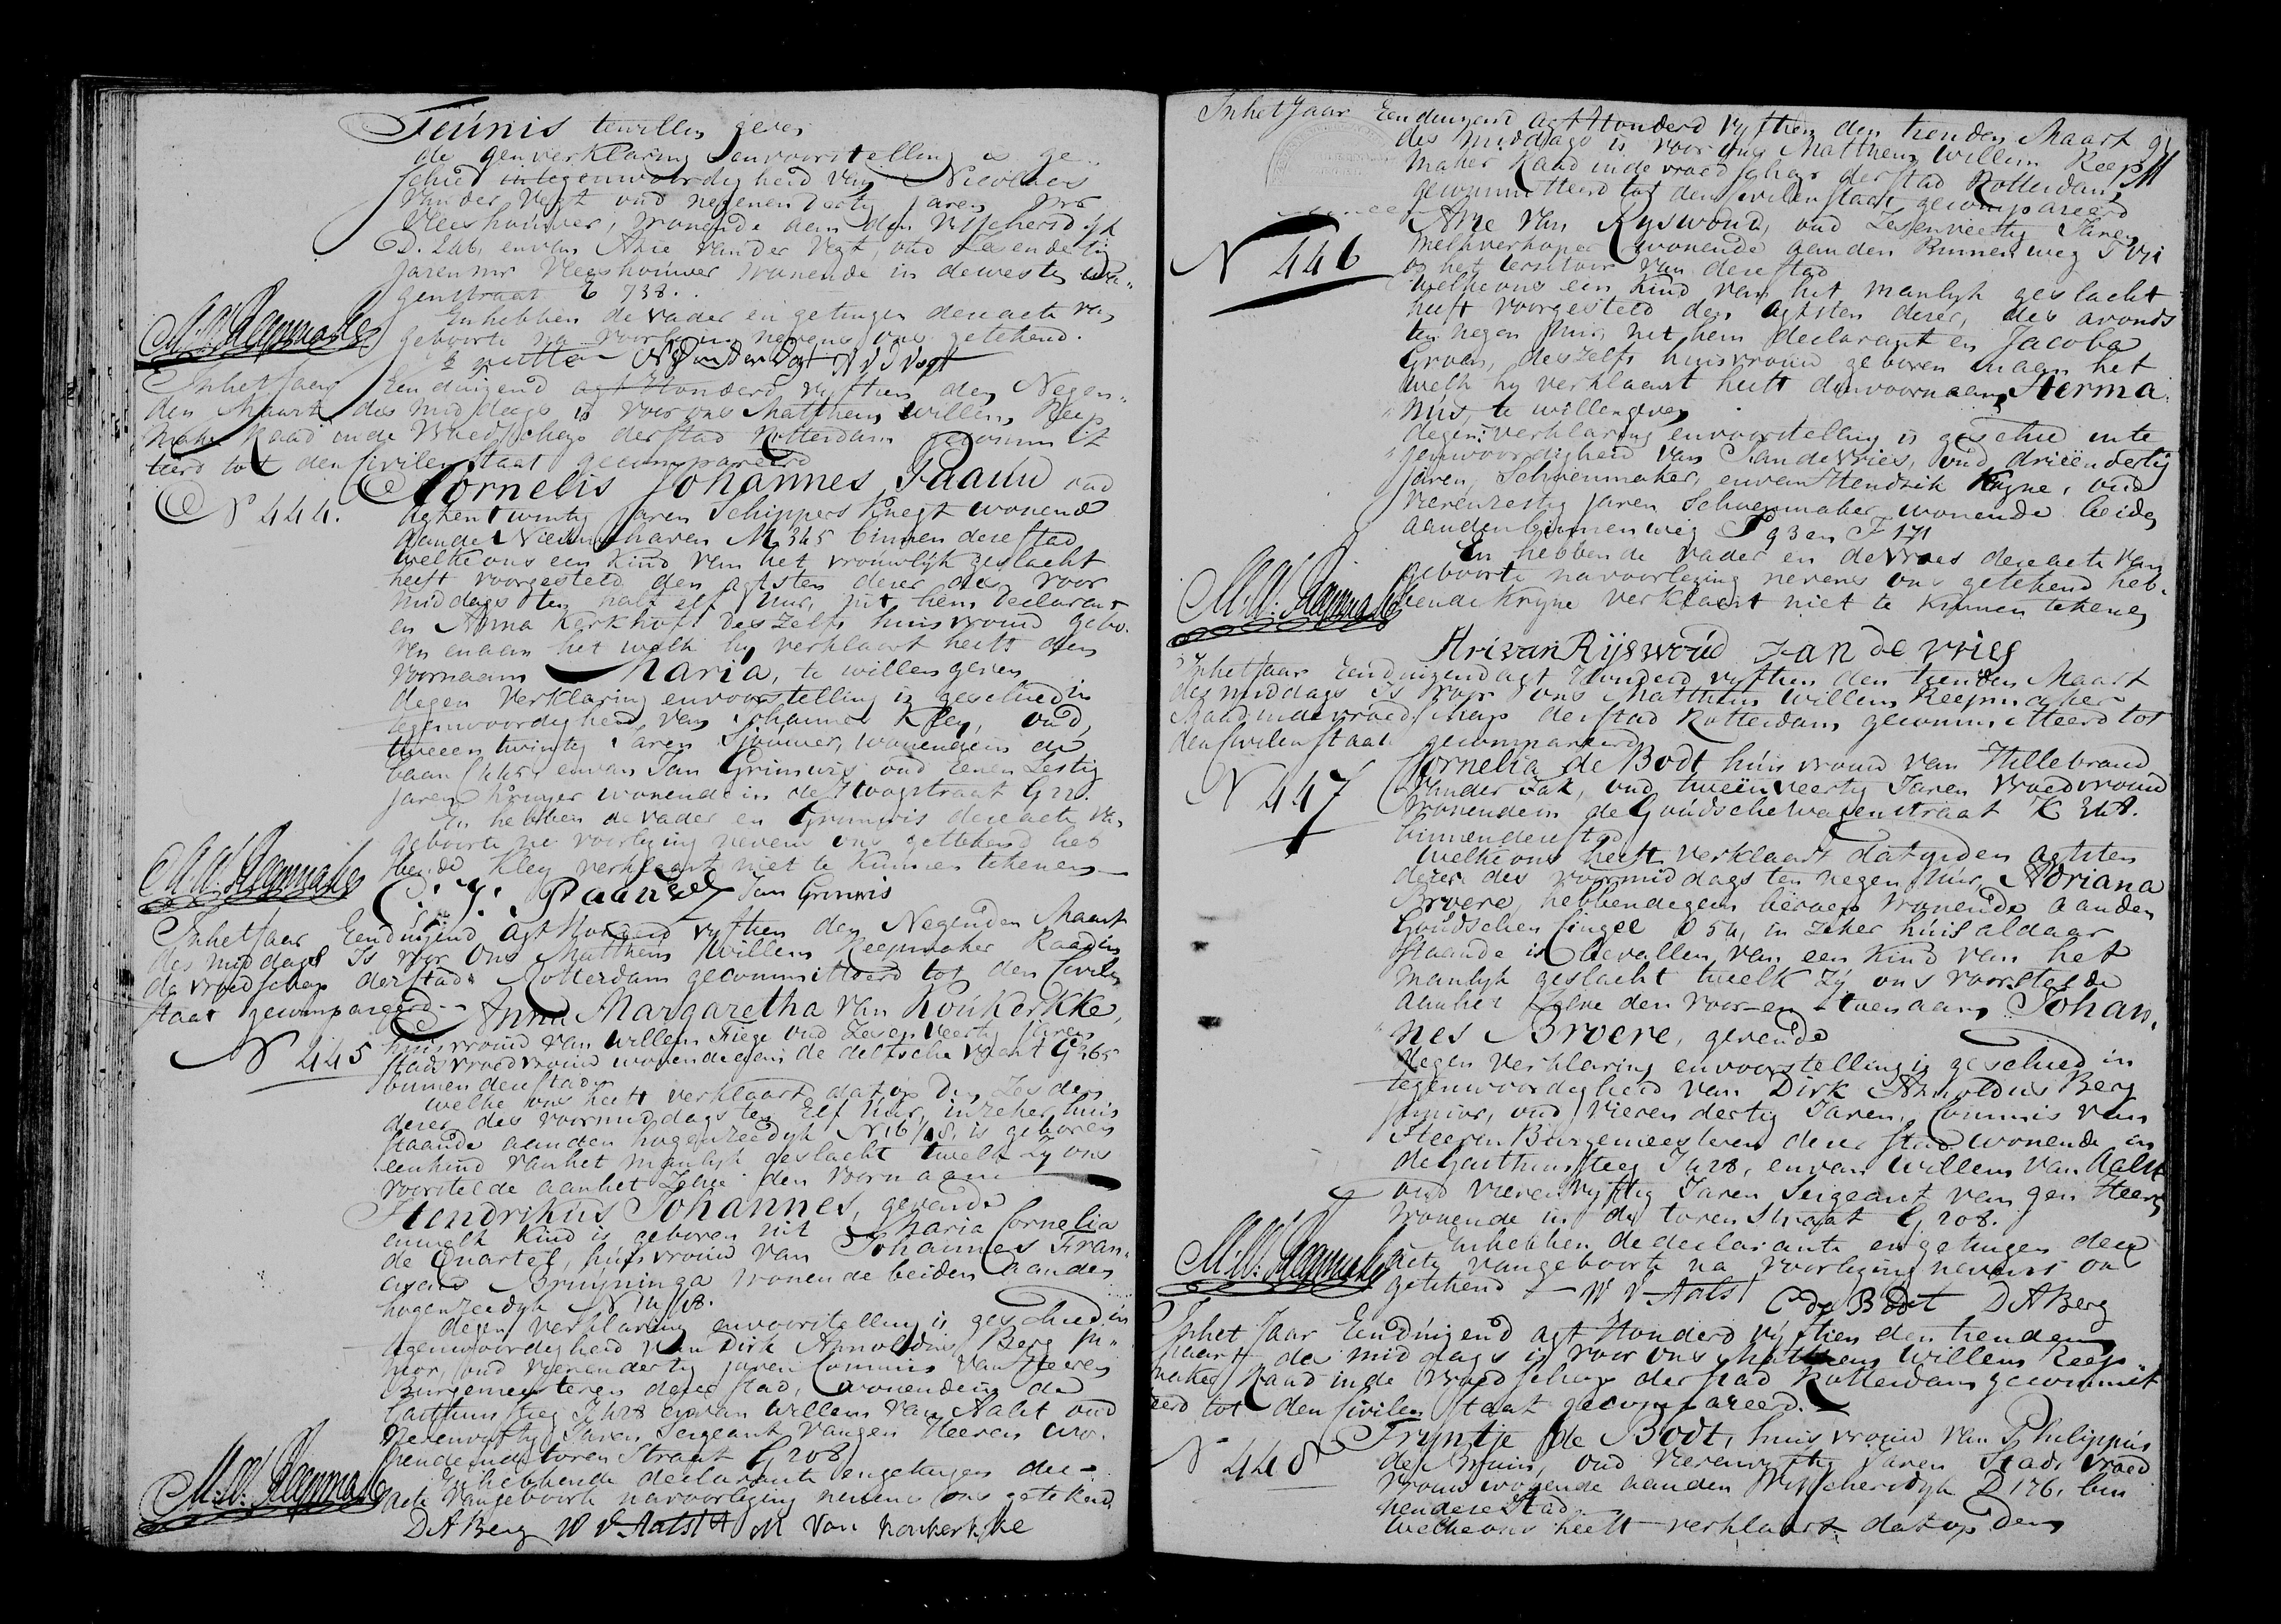 Teúnis te willen geven
de gen verklaring en voorstelling is ge„
schied in tegenwoordigheid van Nicolaas
van der Vegt oud negenendertig Jaren Mr
Vleeshouwer, wonende aan den Visscherdijk
D. 246, en van Arie van der Vegt, oud Zesendertig
Jaren mr Vleeshouwer wonende in de weste wa„
genstraat E 738.
En hebben de vader en getuigen deze acte van
geboorte na voorlezing nevens ons getekend.
N V D Vegt
In het Jaar Eenduizend agt Honderd vyftien den Negen„
den Maart des middags is voor ons Mattheus Willem Reep
maker Raad in de Vroedschap der stad Rotterdam gecommit
teerd tot den Civilen Staat gecompareerd
Cornelis Johannes Paauw oud
N 444.
agtentwintig Jaren Schippers knegt wonende
aan de Nieuwehaven M 345 binnen deze stad
welke ons een kind van het vrouwlyk geslacht
heeft voorgesteld den agtsten dezer des voor
middags ten half elf uur, uit hem declarant
en Anna Kerkhoff deszelfs huisvrouw gebo.
ren en aan het welk hy verklaart heeft den
voornaam Maria, te willen geven
dezen verklaring en voorstelling is geschied in
tegenwoordigheid van Johannes Kley, oud,
tweeentwintig Jaren Sjouwer, wonende in de
baan 445, en van Jan Grimwis oud eenen Zestig
Jaren Kruyer wonende in de Hoogstraat G 22.
En hebben de vader en Grimwis deze acte van
geboorte na voorlezing nevens ons getekend heb
bende Kley verklaart niet te kunnen tekenen
M.W. Reepmaker
C: J: Paauw Jan Grimwis
In het Jaar Eenduizend Agt Honderd vyftien den Negenden Maart
des middags Is voor Ons Mattheus Willem Reepmaker Raad in
de vroedschap der stad Rotterdam gecommitteerd tot den Civilen
Staat gecompareerd
Anna Margaretha van Koúkerkke,
N 445
huisvrouw van Willem Fiege oud Zesenveertig Jaren
stads vroedvrouw wonende op de delftsche vaart G 365
binnen deze stad
welke ons heeft verklaart dat op den Zesden
dezer des voormiddags ten Elf uur, in zeker huis
staande aan den hogenzeedyk N 16/18, is geboren
een kind van het manlyk geslacht twelk Zy ons
voorstelde aan het Zelve den voornaam
Hendrikús Johannes, gevende
en welk kind is geboren uit Maria Cornelia
de Quartel, huisvrouw van Johannes Fran.
ciscus Bruyninga wonende beiden aan den
hogenzeedyk N 14/18.
dezen verklaring en voorstelling is geschied in
tegenwoordigheid van Dirk Arnoldus Berg ju„
nior, oud vierendertig Jaren Commis van Heeren
Burgemeesteren dezer stad, wonende in de
Carthuisersteeg J 428 en van Willem van Aalst oud
vierenvyftig Jaren Sergeant van gen Heeren wo.
nende in de toren Straat G 208
En hebben de declarante en getuigen deze
Acte van geboorte na voorlezing nevens ons getekend
M.W. Reepmaker
D A Berg W V Aalst A M Van Koukerkke
In het Jaar Eenduizend agt Honderd vyftien den tienden Maart 91
des middags is voor ons Mattheus Willem Reep
maker Raad in de vroedschap der stad Rotterdam
gecommitteerd tot den Civilen Staat gecompareerd
Arie van Ryswoud, oud Zesenveertig Jaren
N 446
melkverkoper wonende aan den Binnenweg
op het territoir van deze stad
welke ons een kind van het manlyk geslacht
heeft voorgesteld den agtsten dezer, des avonds
ten negen uur, uit hem declarant en Jacoba
Groen, deszelfs huisvrouw geboren en aan het
welk hy verklaart heeft den voornaam Herma.
nus, te willen geven
dezen verklaring en voorstelling is geschied in te
genwoordigheid van Jan de Vries, oud drieëndertig
Jaren, Schoenmaker, en van Hendrik Kryne, oud
vierenzestig Jaren Schoenmaker wonende beiden
aan den binnenweg P 93 en F 171
En hebben de vader en de Vries deze acte van
geboorte na voorlezing nevens ons getekend heb.
bende Kryne verklaart niet te kunnen tekenen
M.W. Reepmaker
Arie van Rijswoúd Jan de vries
In het Jaar Eenduizend agt Honderd vyftien den tienden Maart
des middags Is voor ons Mattheus Willem Reepmaker
Raad in de vroedschap der stad Rotterdam gecommitteerd tot
den Civilen staat gecompareerd
Cornelia de Bodt huisvrouw van Hillebrand
N 447
van der Jak, oud tweeënveertig Jaren vroedvrouw
wonende in de Goudsche wagenstraat K 348.
binnen deze stad
welke ons heeft verklaart dat op den agtsten
dezer des voormiddags ten negen uur, Adriana
Broere, hebbende geen beroep wonende aan den
Goudschen Singel O 54, in zeker huis aldaar
staande is bevallen van een kind van het
manlyk geslacht twelk Zy ons voorstelde
aan het Zelve den voor- en toenaam Johan.
nes Broere, gevende
dezen verklaring en voorstelling is geschied in
tegenwoordigheid van Dirk Arnoldus Berg
Junior, oud vierendertig Jaren, Commis van
Heeren Burgemeesteren dezer stad wonende in
de Carthuisersteeg J 428, en van Willem van Aalst
oud vierenvyftig Jaren Sergeant van gen Heeren
wonende in de toren Straat G 208.
En hebben de declarante en getuigen deze
acte van geboorte na voorlezing nevens ons
M.W. Reepmaker
getekend W V Aalst C de Bodt D A Berg
In het Jaar Eenduizend agt Honderd vyftien den tienden
Maart des middags is voor ons Mattheus Willem Reep„
maker Raad in de Vroedschap der stad Rotterdam gecommit
teerd tot den Civilen Staat gecompareerd.
N 448
Tryntje de Bodt, huisvrouw van Philippus
de Bruin, oud vierenvyftig Jaren Stads vroed
vrouw wonende aan den Visschersdyk D 176, bin
nen deze Stad
welke ons heeft verklaart dat op den